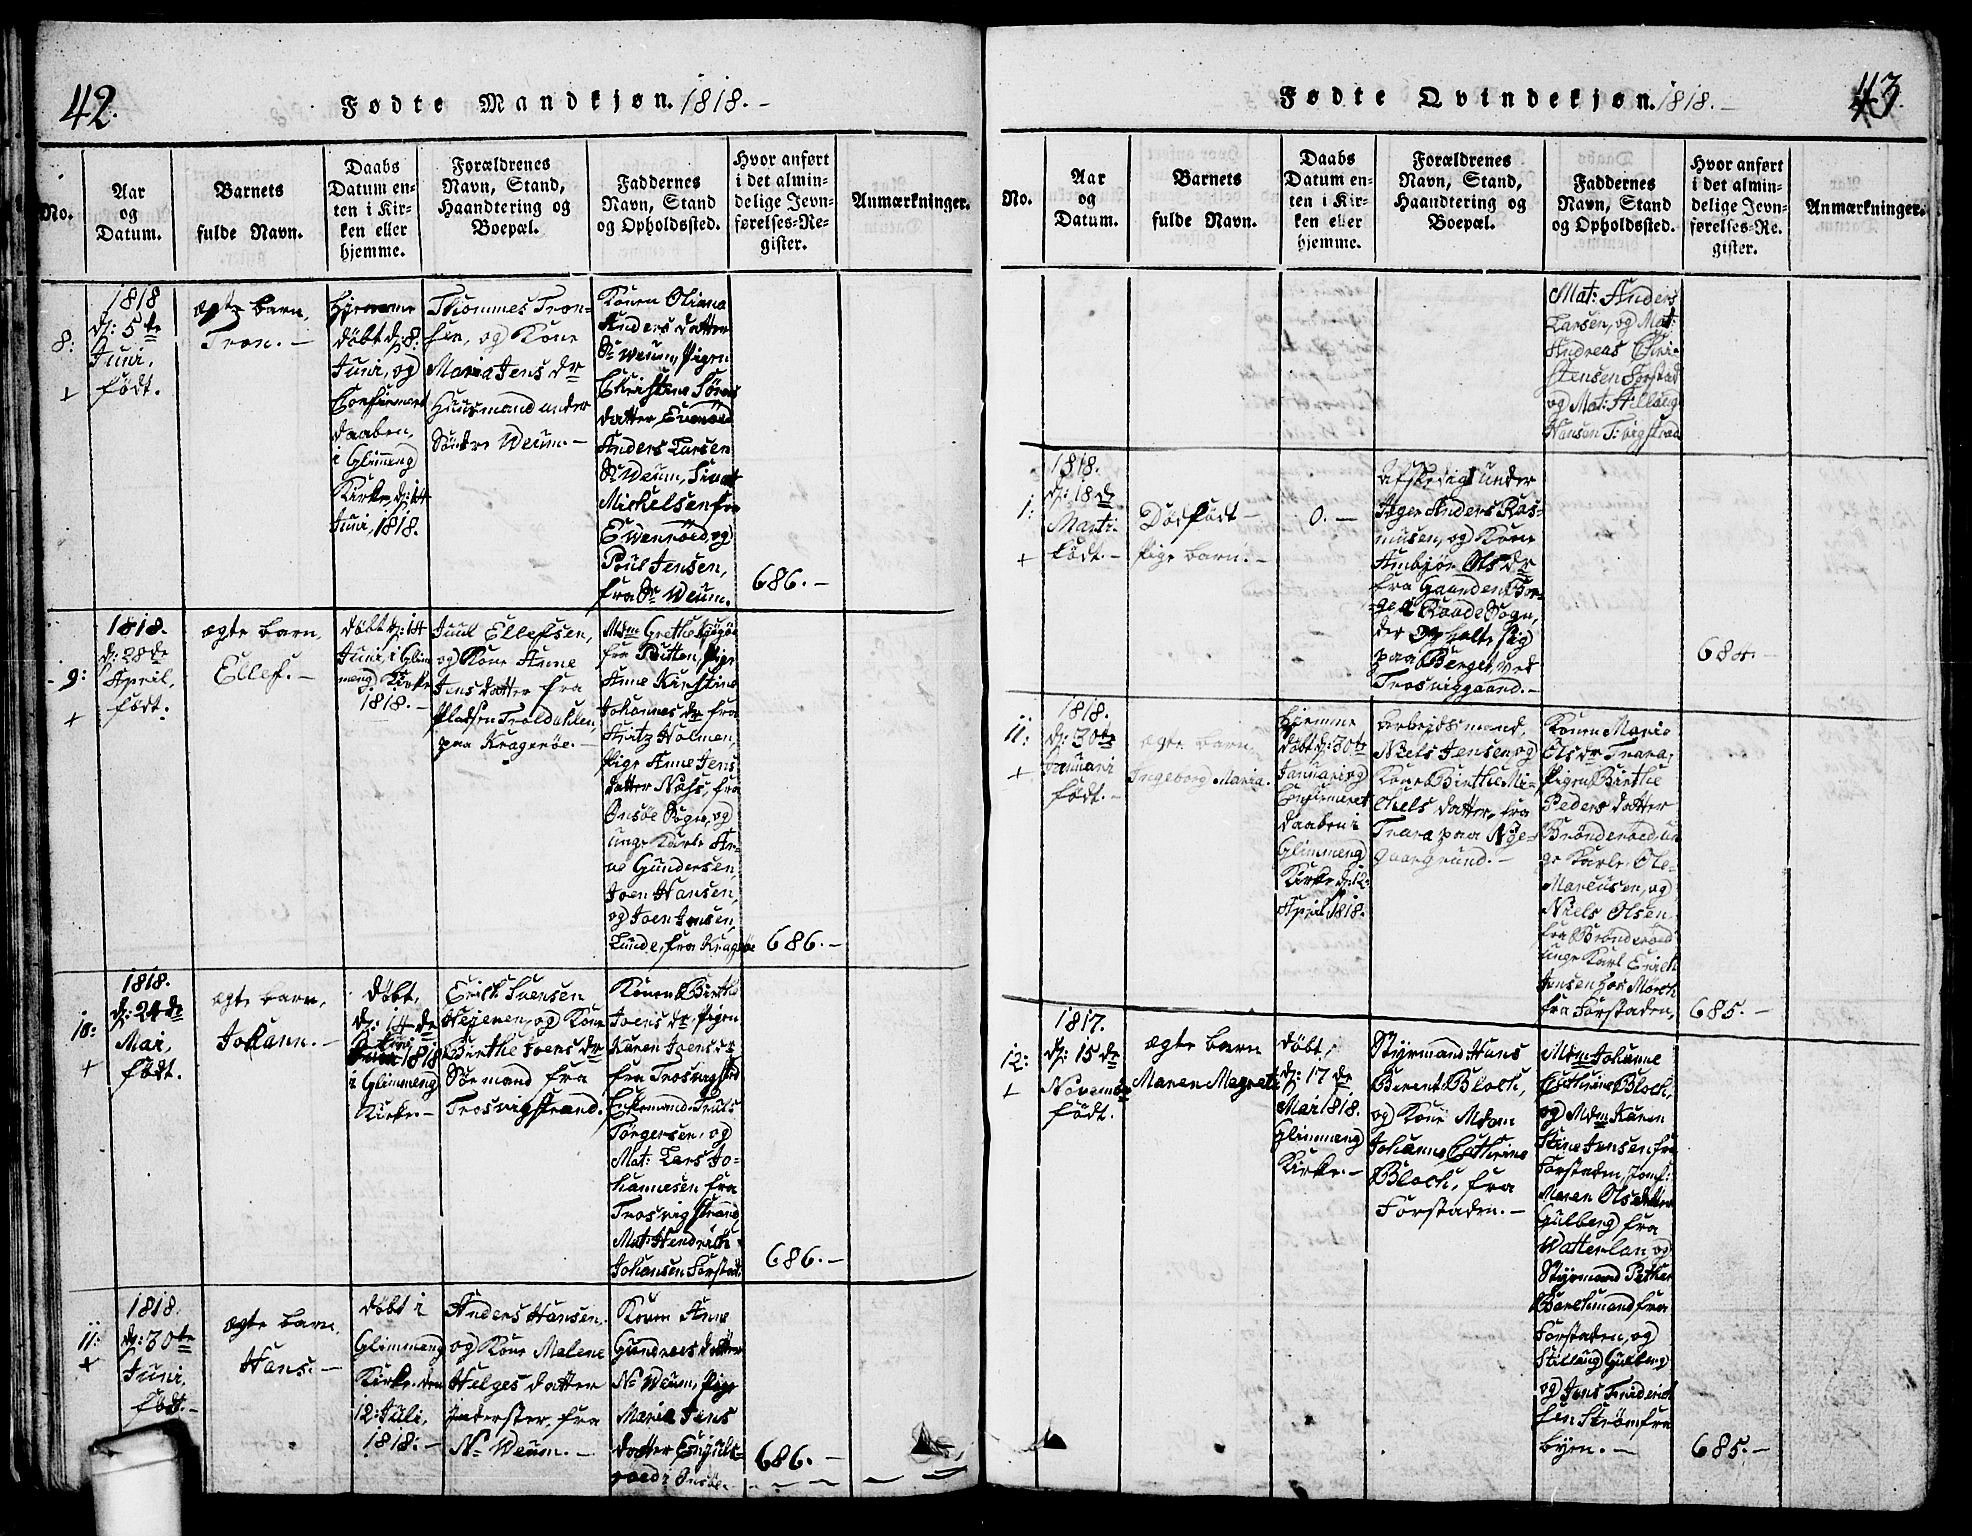 42.
Fødte Mandkjøn. 1818.-
No.
Aar
og
Datum.
Barnets
fulde Navn.
Daabs
Datum en-
ten i Kir-
ken eller
hjemme.
Forældrenes
Navn, Stand,
Haandtering og
Boepæl.
Faddernes
Navn, Stand
og Opholdssted.
Hvor anført
i det almin-
delige Jevn-
førelses-Re-
gister.
Anmærkninger.
8:
+
1818
d: 5te
Juni,
født.
ægte barn,
Tron.-
Hjemme
døbt d: 8:
Juni, og
Confirmert
daaben,
i Glimmeng
Kirke, d: 14
Juni, 1818.
Thommes Tron-
sen, og Kone
Maria Jens dr
Huusmand under
Søndre Weum.-
Konen Oliana
Anders datter
Sr Weum, Pigen
Christine Sørens
datter, Evenrød
Anders Larsen
Sr Weum,
Michelsen fra
Ewenrød, og
Poul Jensen,
fra Sr Weum.
686.-
9:
+
1818.
d: 28de
April,
født.
ægte barn,
Ellef.-
døbt d: 14
Juni, i Glim
meng Kirke
1818.-
Juul Ellefsen,
og Kone Anne
Jens datter fra
Pladsen Troldahlen,
paa Kragerøe.-
Mdm Grethe
fra Putten, Pige
Anne Kirstine
Johannes dr fra
Fritz Holmen,
Pige Anne Jens
datter Næs, fra
Onsøe Sogn, og
unge Karle Ar-
ne Gundersen,
Joen Hansen,
og Joen Jensen,
Lunde, fra Kragerøe
686.-
10:
+
1818.
d: 24de
Mai,
født.
ægte barn,
Johann.-
døbt,
d: 14de
Juni 1818
i Glimmeng
Kirke.-
Erich Svensen
Hejeren, og Kone
Birthe Joens dr
Sømand fra
Trosvigstrand.
Konen Birthe
Joens dr, Pigen
Karen Joens dr
fra Trosvigstrd
Enkemand Truls
Tørgersen, og
Mat: Lars Jo-
hannesen fra
Trosvigstrand
Mat: Hendrich
Johansen Forstad.
686.-
11:
+
1818.
d: 30te
Juni,
født.-
ægte barn,
Hans.-
døbt i
Glimmeng
Kirke den
12: Juli,
1818.-
Anders Hansen,
og Kone Malene
Helges datter
Inderster, fra
Nr Weum.-
Konen Anne
Gundres datter
Nr Weum, Pige
Maria Jens
datter
Onsøe.
686.-
43.
Fødte Qvindekjøn. 1818.-
No.
Aar
og
Datum.
Barnets
fulde Navn.
Daabs
Datum en-
ten i Kir-
ken eller
hjemme.
Forældrenes
Navn, Stand,
Haandtering og
Boepæl.
Faddernes
Navn, Stand
og Opholdssted.
Hvor anført
i det almin-
delige Jevn-
førelses-Re-
gister.
Anmærkninger.
Mat: Anders
Larsen, og Mat:
Andreas Chri-
stensen Forstad
og Mat: Stillaug
Hansen T:vigstrand
1:
+
1818.
d: 18de
Marti.
født.-
Dødfødt
Pige barn.-
0.-
Afskediget under
Jæger Anders Ras-
musen, og Kone
Ambjør Ols dr
fra Gaarden Tor-
get Raade Sogn,
der opholte sig
paa Berget, ved
Trosviggaard.-
684.-
11:
+
1818.
d: 30te
Januari
født.-
ægte barn,
Ingeborg Maria.
hjemme
døbt d: 30te
Januari og
Confirmeret
daaben i
Glimmeng
Kirke d: 12.
April 1818.
Arbeidsmand,
Niels Jensen og
Kone Birthe Mi-
chels datter, fra
Trara paa Nye-
gaargrund.-
Konen Marie
Ols dr Trara,
Pigen Birthe
Peders datter
Brønderød, un
ge Karle, Ole
Marcusen, og
Niels Olsen
fra Brønderød
unge Karl Erich
Jensen hos Mørch
fra Forstaden,
685.-
12:
+
1817.
d: 15de
Novembr
født.
ægte barn
Maren Magrete
døbt,
d: 17de
Mai 1818.
Glimmeng
Kirke.-
Styrmand Hans
Berent Bloch,
og Kone Mdam
Johanne Cathrine
Bloch, fra
Forstaden.-
Mdm Johanne
Cathrine Bloch,
og Mdm Karen
Stine Jensen fra
Forstaden, Jomf:
Maren Ols datter
Gulberg fra
Watterlan, og
Styrmand Petter
Borchmand fra
Forstaden, og
Stillaug Gulberg
og Jens Friderich
sen Strøm fra
byen.-
685.-